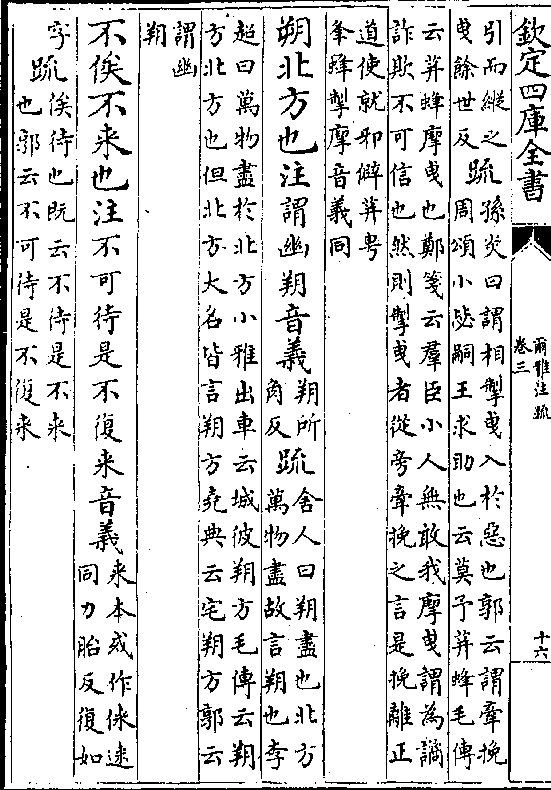 欽定四庫全書
爾雅注疏
卷三
十六
引而縱之疏孫炎曰謂相掣曳入於惡也郭云謂牽挽
曳餘世反
周頌小毖嗣王求助也云莫予荓蜂毛傳
云荓蜂摩曳也鄭箋云羣臣小人無敢我摩曳謂為譎
詐欺不可信也然則掣曳者從旁牽挽之言是挽離正
道使就邪僻荓甹
夆蜂掣摩音義同
朔北方也注謂幽朔音義朔所
角反
疏舍人曰朔盡也北方
萬物盡故言朔也李
巡曰萬物盡於北方小雅出車云城彼朔方毛傳云朔
方北方也但北方大名皆言朔方堯典云宅朔方郭云
謂幽
朔
不俟不来也注不可待是不復来音義来本或作倈逨
同力胎反復如
字疏俟待也既云不待是不来
也郭云不可待是不復来